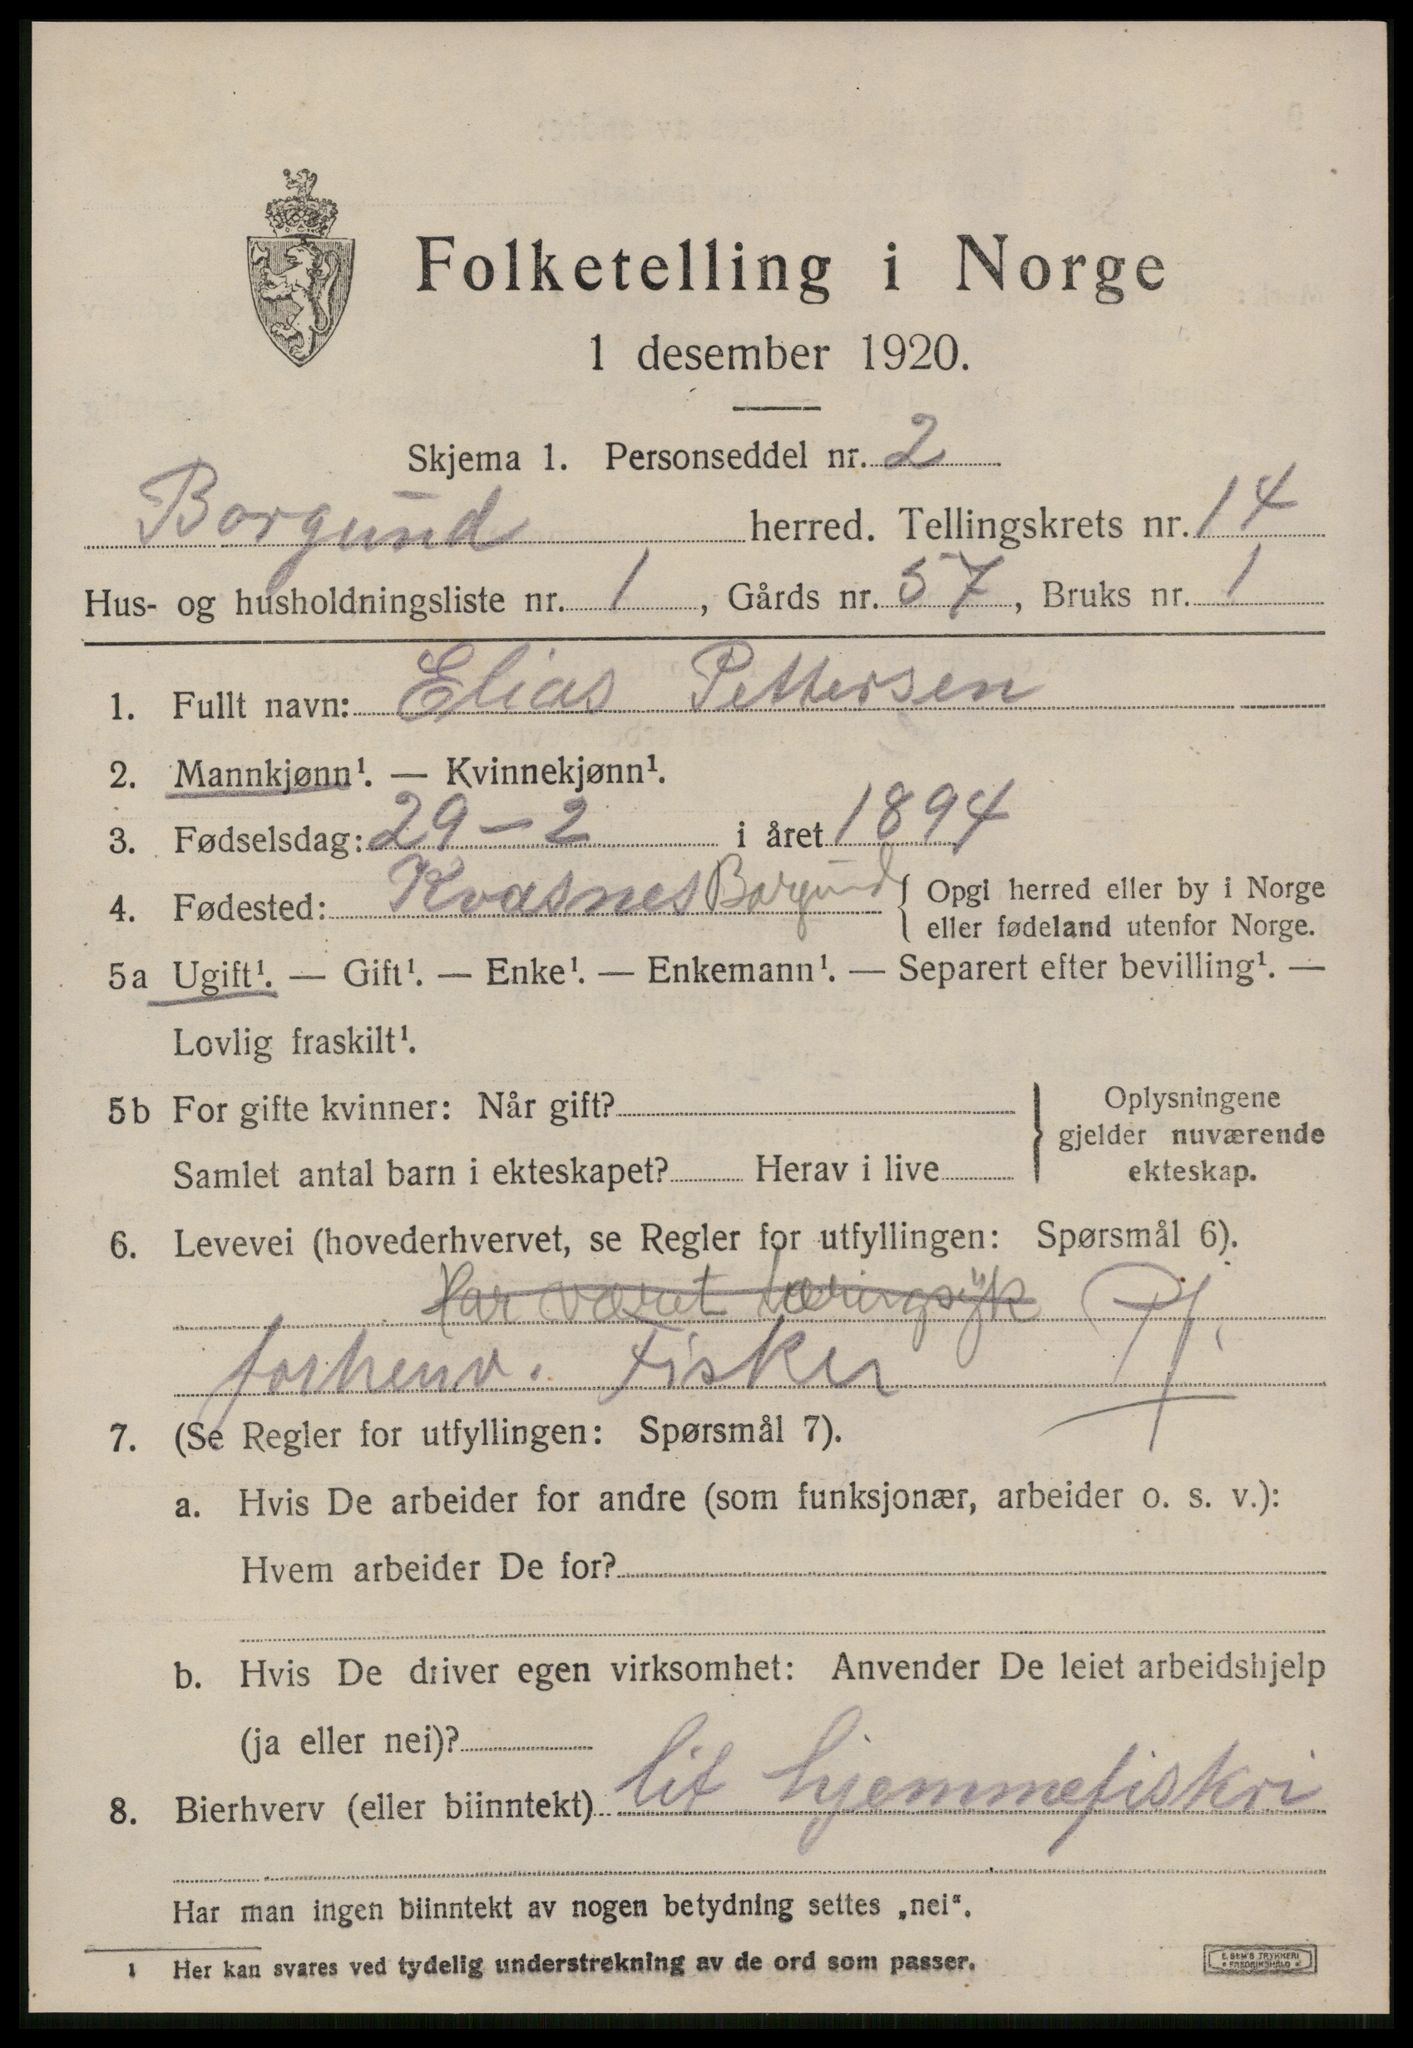 Folketelling i Norge
1 desember 1920.
Skjema 1. Personseddel nr. 2
Borgund herred. Tellingskrets nr. 14
Hus- og husholdningsliste nr. 1, Gårds nr. 57, Bruks nr. 1
1. Fullt navn: Elias Pettersen
2. Mannkjønn¹. — Kvinnekjønn¹.
3. Fødselsdag: 29-2 i året 1894
4. Fødested: Kvasnes Borgund { Opgi herred eller by i Norge
eller fødeland utenfor Norge.
5a Ugift¹. — Gift¹. — Enke¹. — Enkemann¹. — Separert efter bevilling¹. —
Lovlig fraskilt¹.
5b For gifte kvinner: Når gift?
Samlet antal barn i ekteskapet? Herav i live
} Oplysningene
gjelder nuværende
ekteskap.
6. Levevei (hovederhvervet, se Regler for utfyllingen: Spørsmål 6).
Har været tæringsyk
forhenv. Fisker
7. (Se Regler for utfyllingen: Spørsmål 7).
a. Hvis De arbeider for andre (som funksjonær, arbeider o. s. v.):
Hvem arbeider De for?
b. Hvis De driver egen virksomhet: Anvender De leiet arbeidshjelp
(ja eller nei)?
8. Bierhverv (eller biinntekt) lit hjemmefiskri
Har man ingen biinntekt av nogen betydning settes „nei“.
1 Her kan svares ved tydelig understrekning av de ord som passer.
E. SEM'S TRYKKERI
FREDRIKSHALD